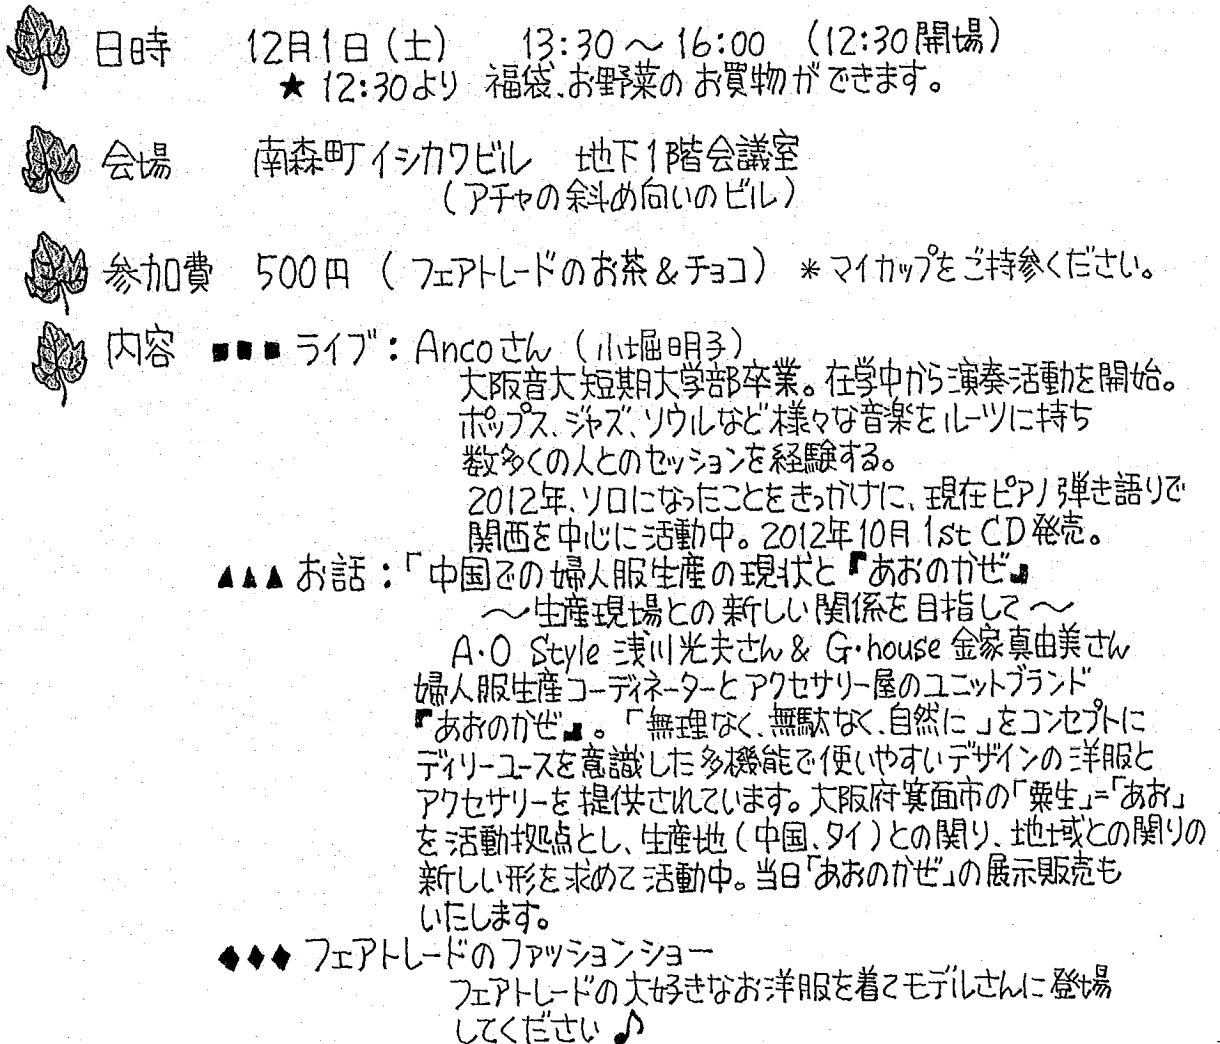 日時 12月1日(土) 13:30〜16:00 (12:30開場)
★12:30より 福袋、お野菜のお買物ができます。
会場 南森町イシカワビル 地下1階会議室
(アチャの斜め向いのビル)
参加費 500円 (フェアトレードのお茶&チョコ) *マイカップをご持参ください。
内容 ■■■ライブ:Ancoさん(小堀明子)
大阪音大短期大学部卒業。在学中から演奏活動を開始。
ポップス、ジャズ、ソウルなど様々な音楽をルーツに持ち
数多くの人とのセッションを経験する。
2012年、ソロになったことをきっかけに、現在ピアノ弾き語りで
関西を中心に活動中。2012年10月 1st CD発売。
▲▲▲お話:「中国での婦人服生産の現状と『あおのかぜ』
〜生産現場との新しい関係を目指して〜
A・O Style 浅川光夫さん & G・house 金家真由美さん
婦人服生産コーディネーターとアクセサリー屋のユニットブランド
『あおのかぜ』。「無理なく、無駄なく、自然に」をコンセプトに
ディリーユースを意識した多機能で使いやすいデザインの洋服と
アクセサリーを提供されています。大阪府箕面市の「粟生」=「あお」
を活動拠点とし、生産地(中国、タイ)との関り、地域との関りの
新しい形を求めて活動中。当日「あおのかぜ」の展示販売も
いたします。
◆◆◆フェアトレードのファッションショー
フェアトレードの大好きなお洋服を着てモデルさんに登場
してください♪